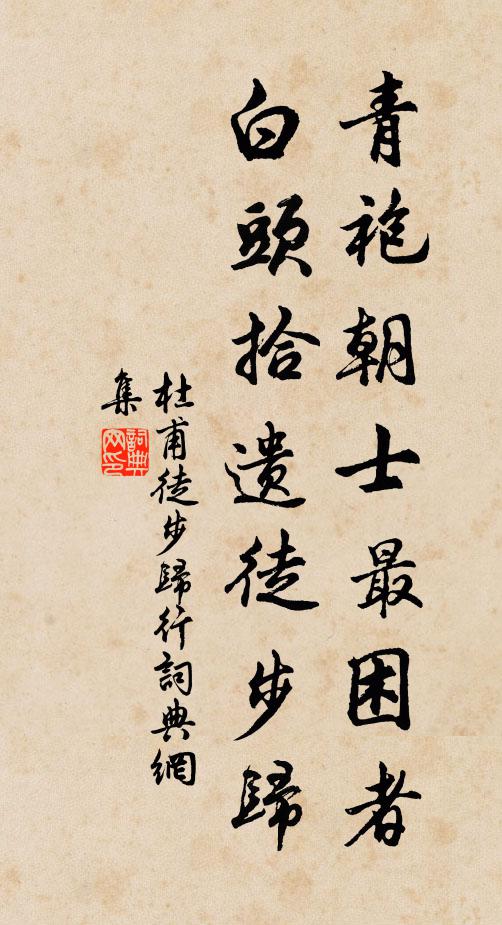 青袍朝士最困者
白頭拾遺徒步歸
杜甫徒步歸行詞典網
集
詞典網印